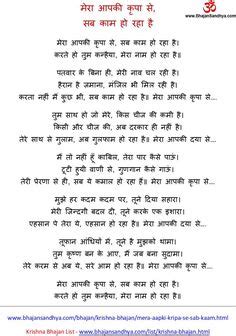 मेरा आपकी कृपा से,
सब काम हो रहा है
www.bhajansandhya.com
मेरा आपकी कृपा से, सब काम हो रहा है।
करते हो तुम कन्हैया, मेरा नाम हो रहा है॥
पतवार के बिना ही, मेरी नाव चल रही है।
हैरान है ज़माना, मंजिल भी मिल रही है।
करता नहीं मैं कुछ भी, सब काम हो रहा है॥ मेरा आपकी दया से...
तुम साथ हो जो मेरे, किस चीज की कमी है।
किसी और चीज की, अब दरकार ही नहीं है।
तेरे साथ से गुलाम, अब गुलफाम हो रहा है॥ मेरा आपकी दया से...
मैं तो नहीं हूँ काबिल, तेरा पार कैसे पाऊं।
टूटी हुयी वाणी से, गुणगान कैसे गाऊं।
तेरी प्रेरणा से ही, सब ये कमाल हो रहा हैं॥ मेरा आपकी दया से...
मुझे हर कदम कदम पर, तूने दिया सहारा।
मेरी ज़िन्दगी बदल दी, तूने करके एक इशारा।
एहसान पे तेरा ये, एहसान हो रहा है। मेरा आपकी दया से...
तूफान आंधियों में, तूने है मुझको थामा।
तुम कृष्ण बन के आए, मैं जब बना सुदामा।
तेरे करम से अब ये, सरे आम हो रहा है॥ मेरा आपकी दया से...
मेरा आपकी कृपा से, सब काम हो रहा है।
करते हो तुम कन्हैया, मेरा नाम हो रहा है॥
www.bhajansandhya.com/bhajan/krishna-bhajan/mera-aapki-kripa-se-sab-kaam.html
Krishna Bhajan List - www.bhajansandhya.com/list/krishna-bhajan.html